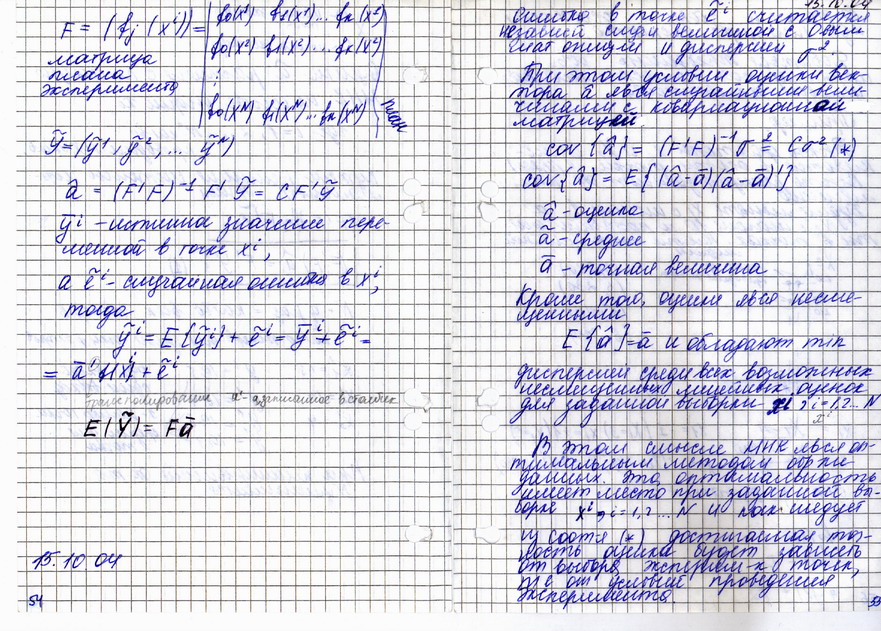 F = (fj (xⁱ)) = | f0(x¹) f1(x¹)... fk(x¹)
матрица f0(x²) f1(x²)... fk(x²)
плана ⋮
эксперимента f0(xᴺ) f1(xᴺ)... fk(xᴺ) |
план
Ỹ = (ỹ¹, ỹ², ... ỹᴺ)
â = (F'F)⁻¹ F' Ỹ = C F' Ỹ
ȳⁱ - истинна значение пере-
менной в точке xⁱ,
а ẽⁱ - случайная ошибка в xⁱ,
тогда
ỹⁱ = E{ỹⁱ} + ẽⁱ = ȳⁱ + ẽⁱ =
= ā' f(xⁱ) + ẽⁱ
транспонирование a' - a записанное в столбик
E(Ỹ) = Fā
15.10 04
54
15.10.04
Ошибка в точке ẽⁱ считается
независ случ величиной с 0вым
мат ожид и дисперсией σ².
При этом условии оценки век-
тора a явся случайными вели-
чинами с ковариационной
матрицей
cov {â} = (F'F)⁻¹ σ² = Cσ² (*)
cov{â} = E{(â-ā)(â-ā)'}
â - оценка
ã - среднее
ā - точная величина
Кроме того, оценки явся несме-
щенными
E{â} = ā и обладают min
дисперсией среди всех возможных
несмещенных линейных оценок
для заданной выборки xⁱ, i = 1,2... N
xⁱ
В этом смысле МНК явся оп-
тимальным методом обр-ки
данных. Эта оптимальность
имеет место при заданной вы-
борке xⁱ, i = 1,2... N и как следует
из соотя (*) достигаемая точ-
ность оценка будет зависеть
от выбора эксперим-х точек,
т.е от условий проведения
эксперимента
55